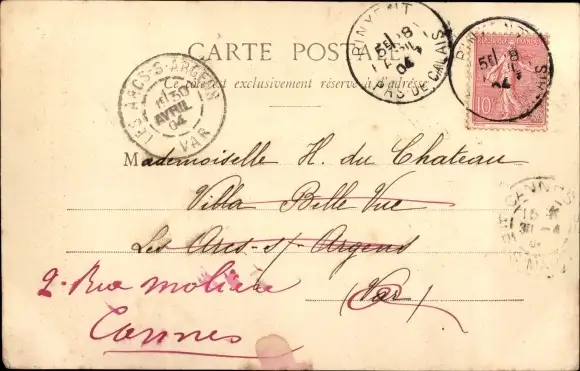 CARTE POSTALE
Ce côté est exclusivement réservé à l'adresse
LES ARCS-S-ARGENS
30
AVRIL
04
VAR
PAS DE CALAIS
04
10
Mademoiselle H. du Chateau
Villa Belle Vue
Les Arcs-s/-Argens
(Var)
2. Rue Molière
Cannes
CANNES